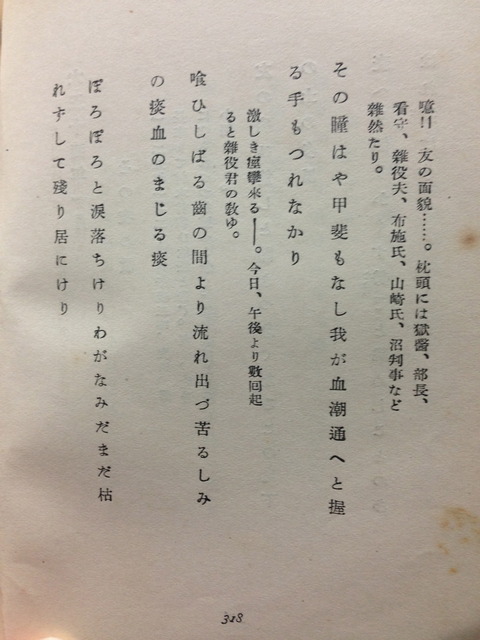 噫!! 友の面貌……。枕頭には獄醫、部長、
看守、雜役夫、布施氏、山崎氏、沼判事など
雜然たり。
その瞳はや甲斐もなし我が血潮通へと握
る手もつれなかり
激しき痙攣來る――。今日、午後より數回起
ると雜役君の敎ゆ。
喰ひしばる齒の間より流れ出づ苦るしみ
の痰血のまじる痰
ぽろぽろと淚落ちけりわがなみだまだ枯
れずして殘り居にけり
318